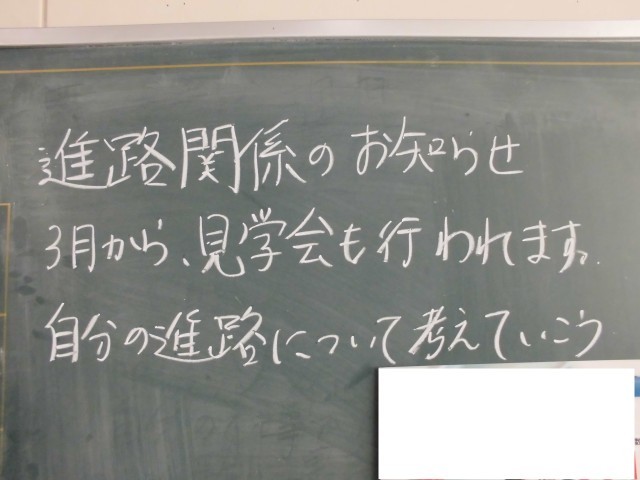 進路関係のお知らせ
3月から、見学会も行われます。
自分の進路について考えていこう